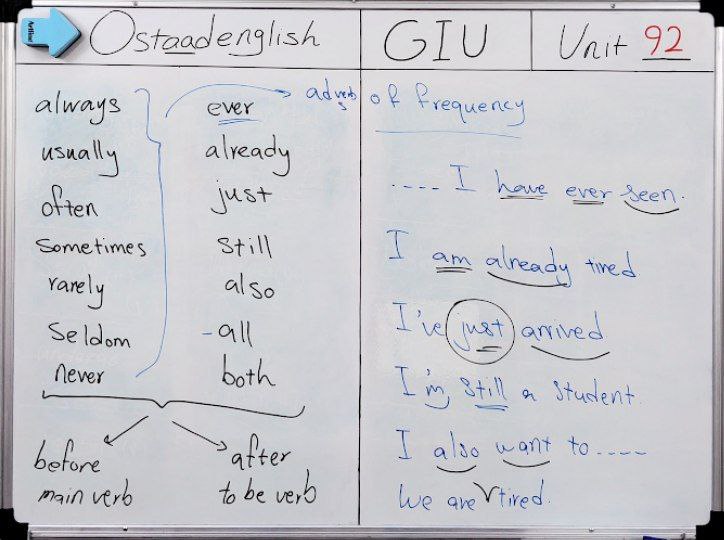 Ostaadenglish
GIU
Unit 92
always
usually
often
Sometimes
rarely
Seldom
never
ever
already
just
still
also
- all
both
before
main verb
after
to be verb
adverbs of frequency
.... I have ever seen.
I am already tired
I've just arrived
I'm still a student
I also want to ----
We are tired.